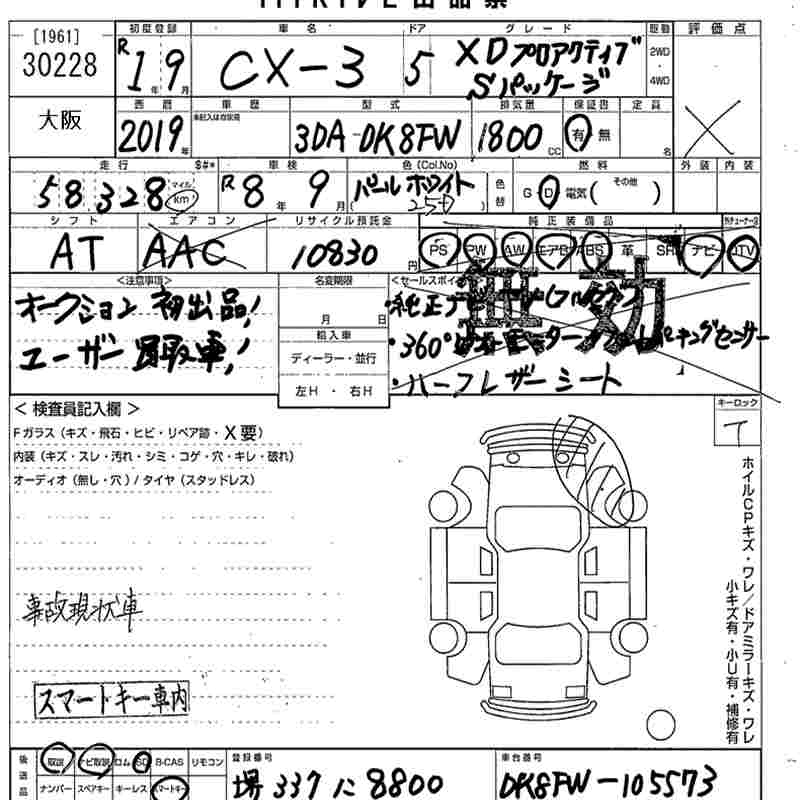 [1961]
30228
初度登録 車名 ドア グレード 駆動 評価点
R 1年 9月 CX-3 5 XDプロアクティブ 2WD
Sパッケージ 4WD
大阪
西暦 車歴 型式 排気量 保証書 定員
2019年 未記入は自家用 3DA-DK8FW 1800CC 有 無 名
走行 $#* 車検 色(Col.No) 燃料 外装 内装
58,328 マイル km R8年 9月 パールホワイト 色替 G D 電気( その他 )
(25D)
シフト エアコン リサイクル預託金 純正装備品
AT AAC 10830円 PS PW AW エアB ABS 革 SR ナビ TV
<注意事項> 名変期限 <セールスポイ
オークション 初出品!
ユーザー買取車!
月 日
輸入車
ディーラー・並行
左H ・ 右H
無効
・ハーフレザーシート
<検査員記入欄> キーロック
Fガラス(キズ・飛石・ヒビ・リペア跡・X要) T
内装(キズ・スレ・汚れ・シミ・コゲ・穴・キレ・破れ)
オーディオ(無し・穴)/タイヤ(スタッドレス)
ホイルCPキズ・ワレ/ドアミラーキズ・ワレ
小キズ有・小U有・補修有
事故現状車
スマートキー車内
後送品 取説 ナビ取説 ロム SD B-CAS リモコン 登録番号 車台番号
ナンバー スペアキー キーレス スマートキー 堺 337 に 8800 DK8FW-105573